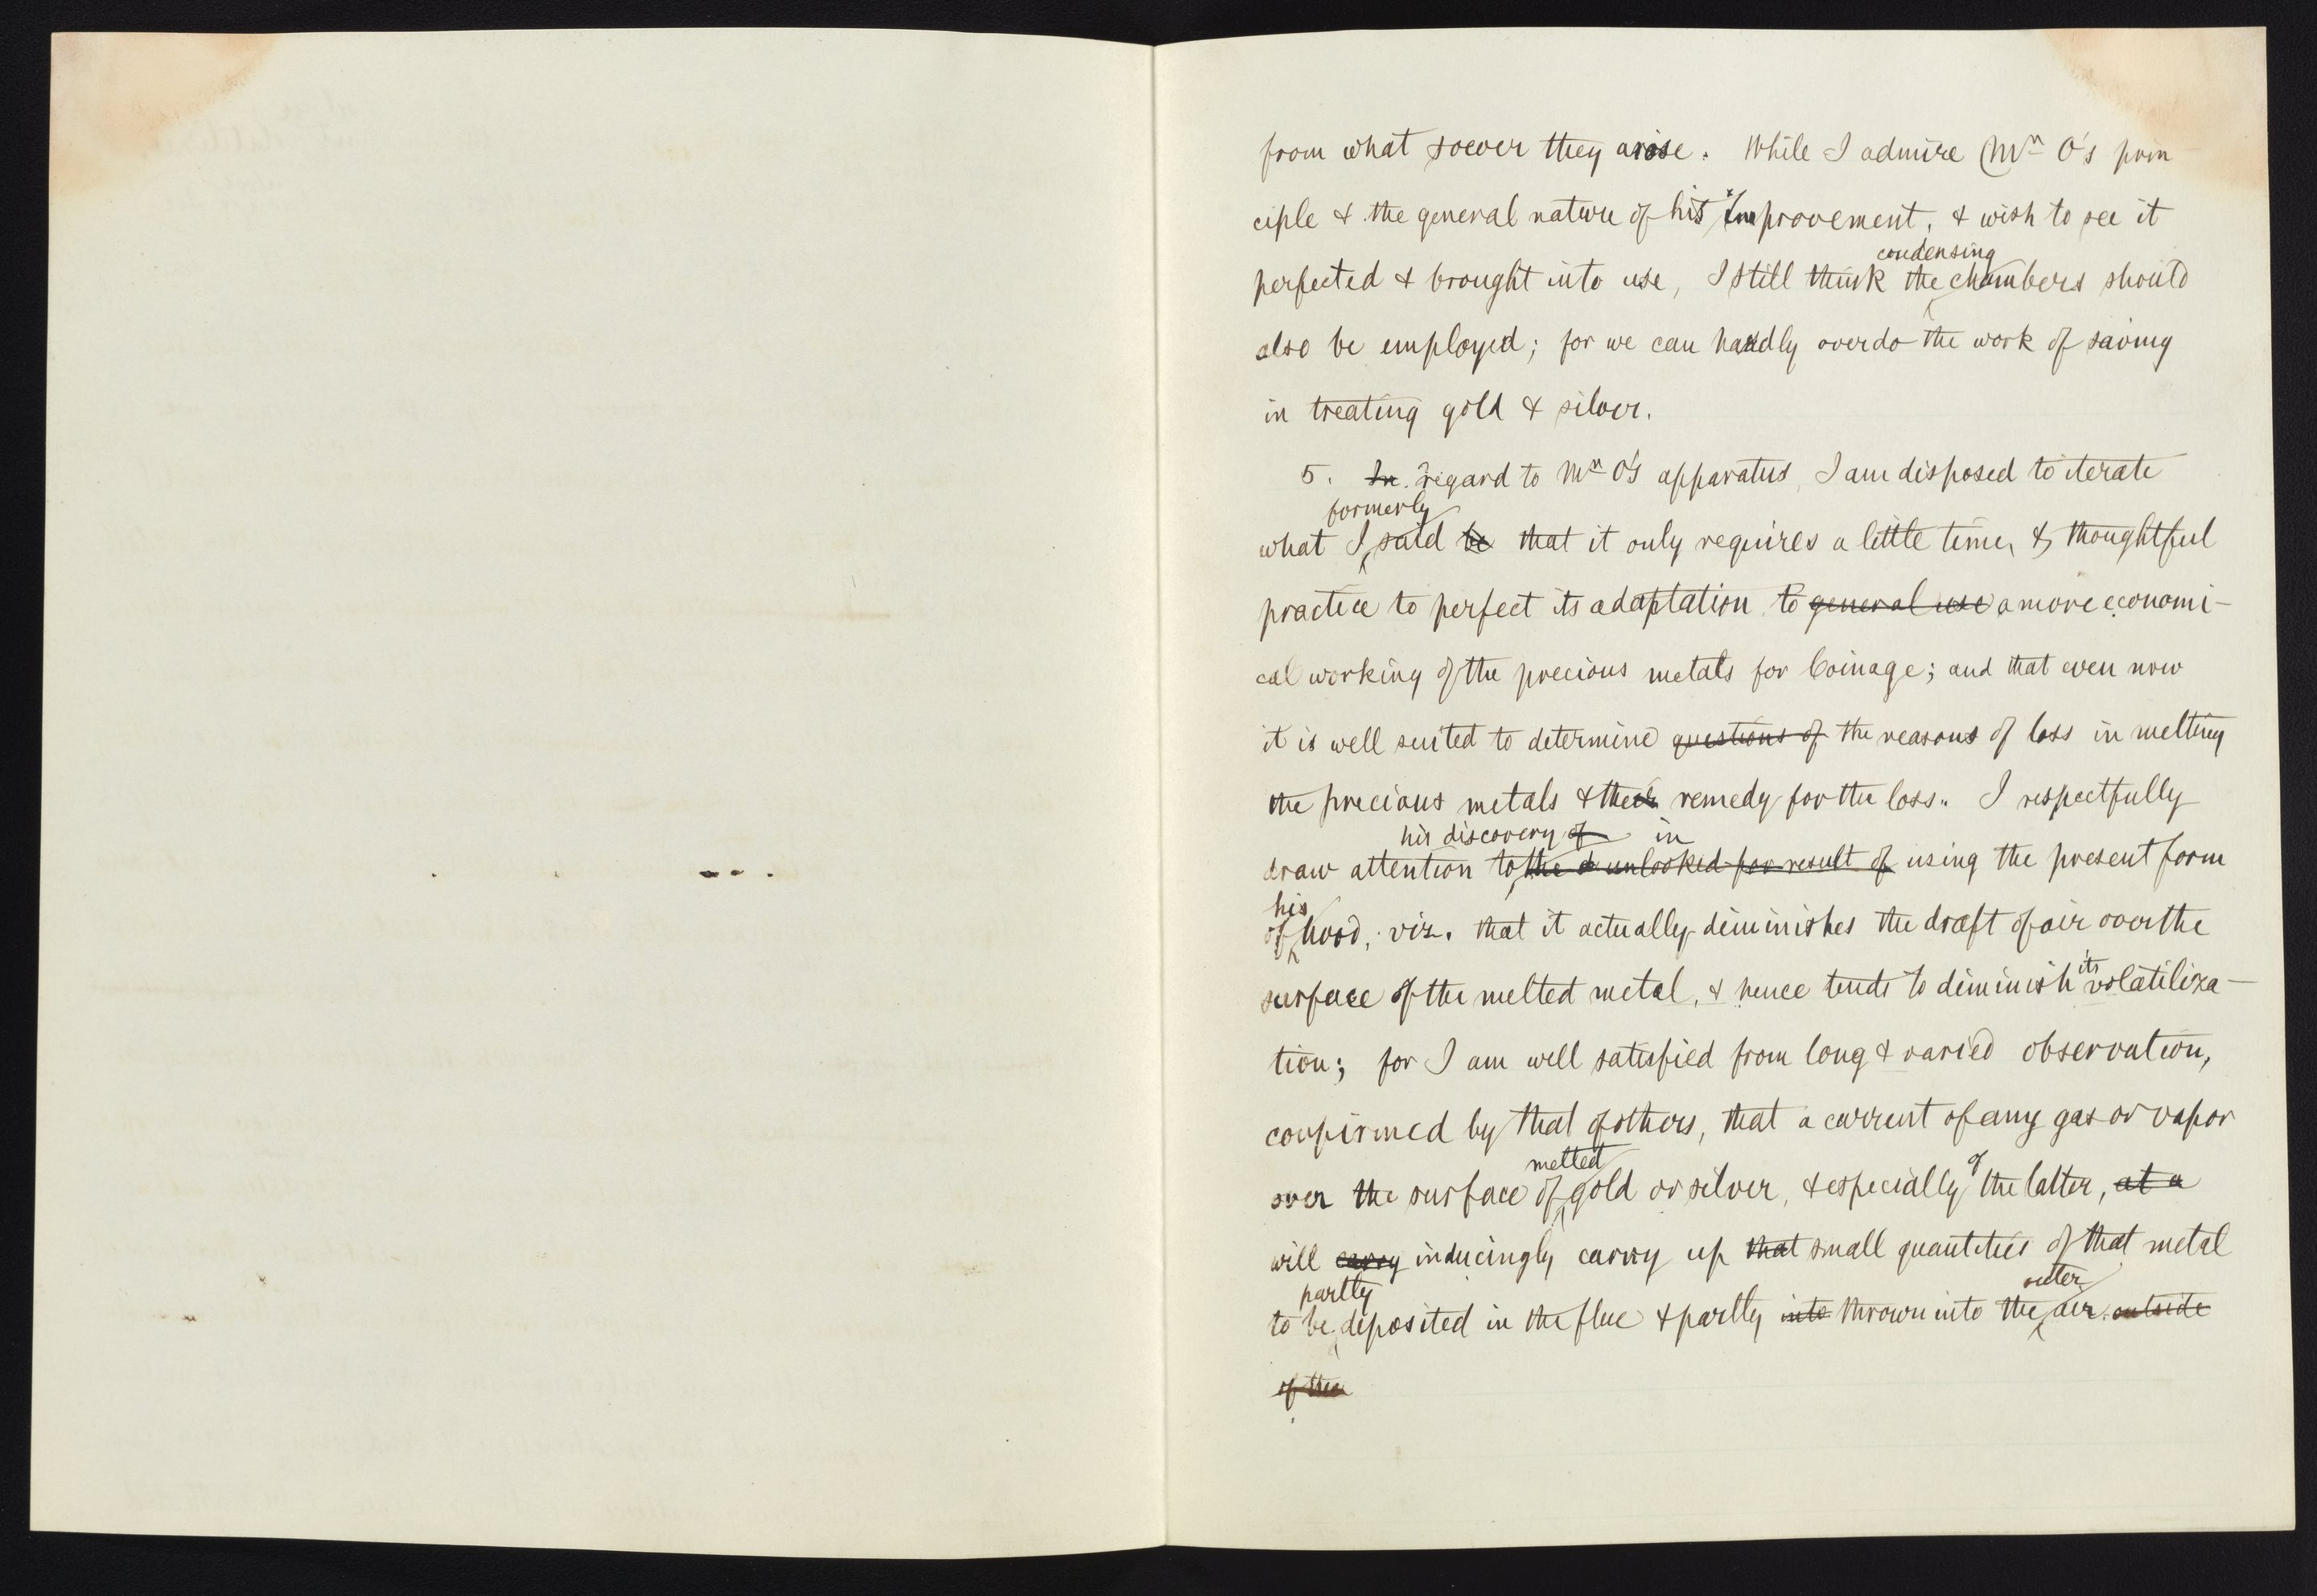 from what soever they arose. While I admire Mr O's prin
ciple & the general nature of his improvement, & wish to see it
condensing
perfected & brought into use, I still think the chambers should
also be employed; for we can hardly overdo the work of saving
in treating gold & silver.
5. In regard to Mr O's apparatus, I am disposed to iterate
formerly
what I said be that it only requires a little time, & thoughtful
practice to perfect its adaptation to general use a more economi-
cal working of the precious metals for Coinage; and that even now
it is well suited to determine questions of the reasons of loss in melting
the precious metals & their remedy for the loss. I respectfully
his discovery of in
draw attention to the unlooked for result of using the present form
his
of hood, viz. that it actually diminishes the draft of air over the
its
surface of the melted metal, & hence tends to diminish volatiliza-
tion; for I am well satisfied from long & varied observation,
confirmed by that of others, that a current of any gas or vapor
melted of
over the surface of gold or silver, & especially the latter, at a
will carry inducingly carry up that small quantities of that metal
partly outer
to be deposited in the flue & partly into thrown into the air outside
of the